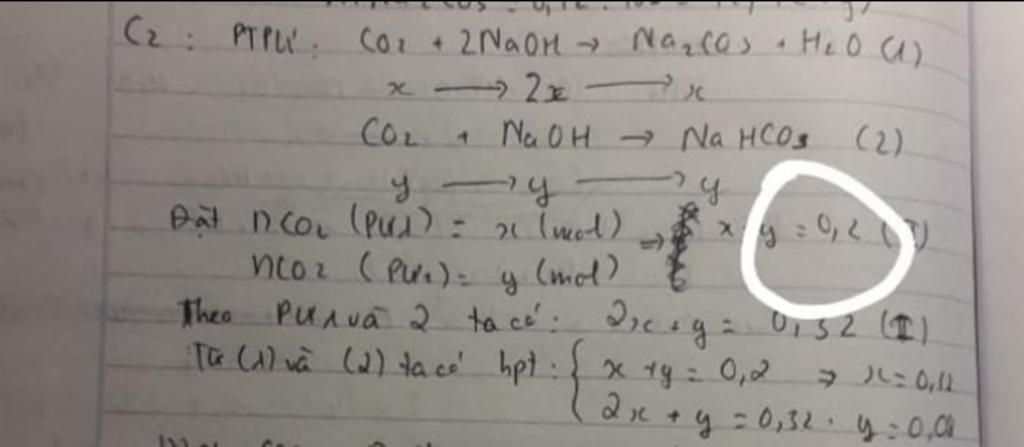 C2 : PTPƯ: CO2 + 2NaOH → Na2CO3 + H2O (1)
x → 2x → x
CO2 + NaOH → NaHCO3 (2)
y → y → y
Đặt nCO2 (PƯ1) = x (mol) ⇒ x y = 0,2 (I)
nCO2 (PƯ2) = y (mol)
Theo PƯ1 và 2 ta có: 2x + y = 0,32 (II)
Từ (1) và (2) ta có hpt: { x + y = 0,2 ⇒ x = 0,12
2x + y = 0,32 . y = 0,08